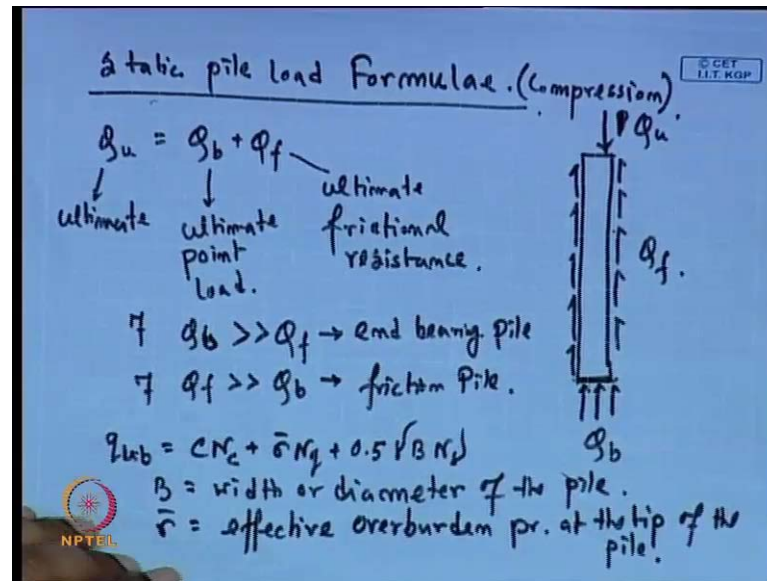 Static pile load Formulae. (Compression)
© CET
I.I.T. KGP
Qu = Qb + Qf
Qu
ultimate
ultimate
point
load.
ultimate
frictional
resistance.
Qf.
If Qb >> Qf → end bearing pile
If Qf >> Qb → friction Pile.
Qb
qub = CNc + σ̄Nq + 0.5 γBNγ
B = width or diameter of the pile.
σ̄ = effective overburden pr. at the tip of the
pile.
NPTEL